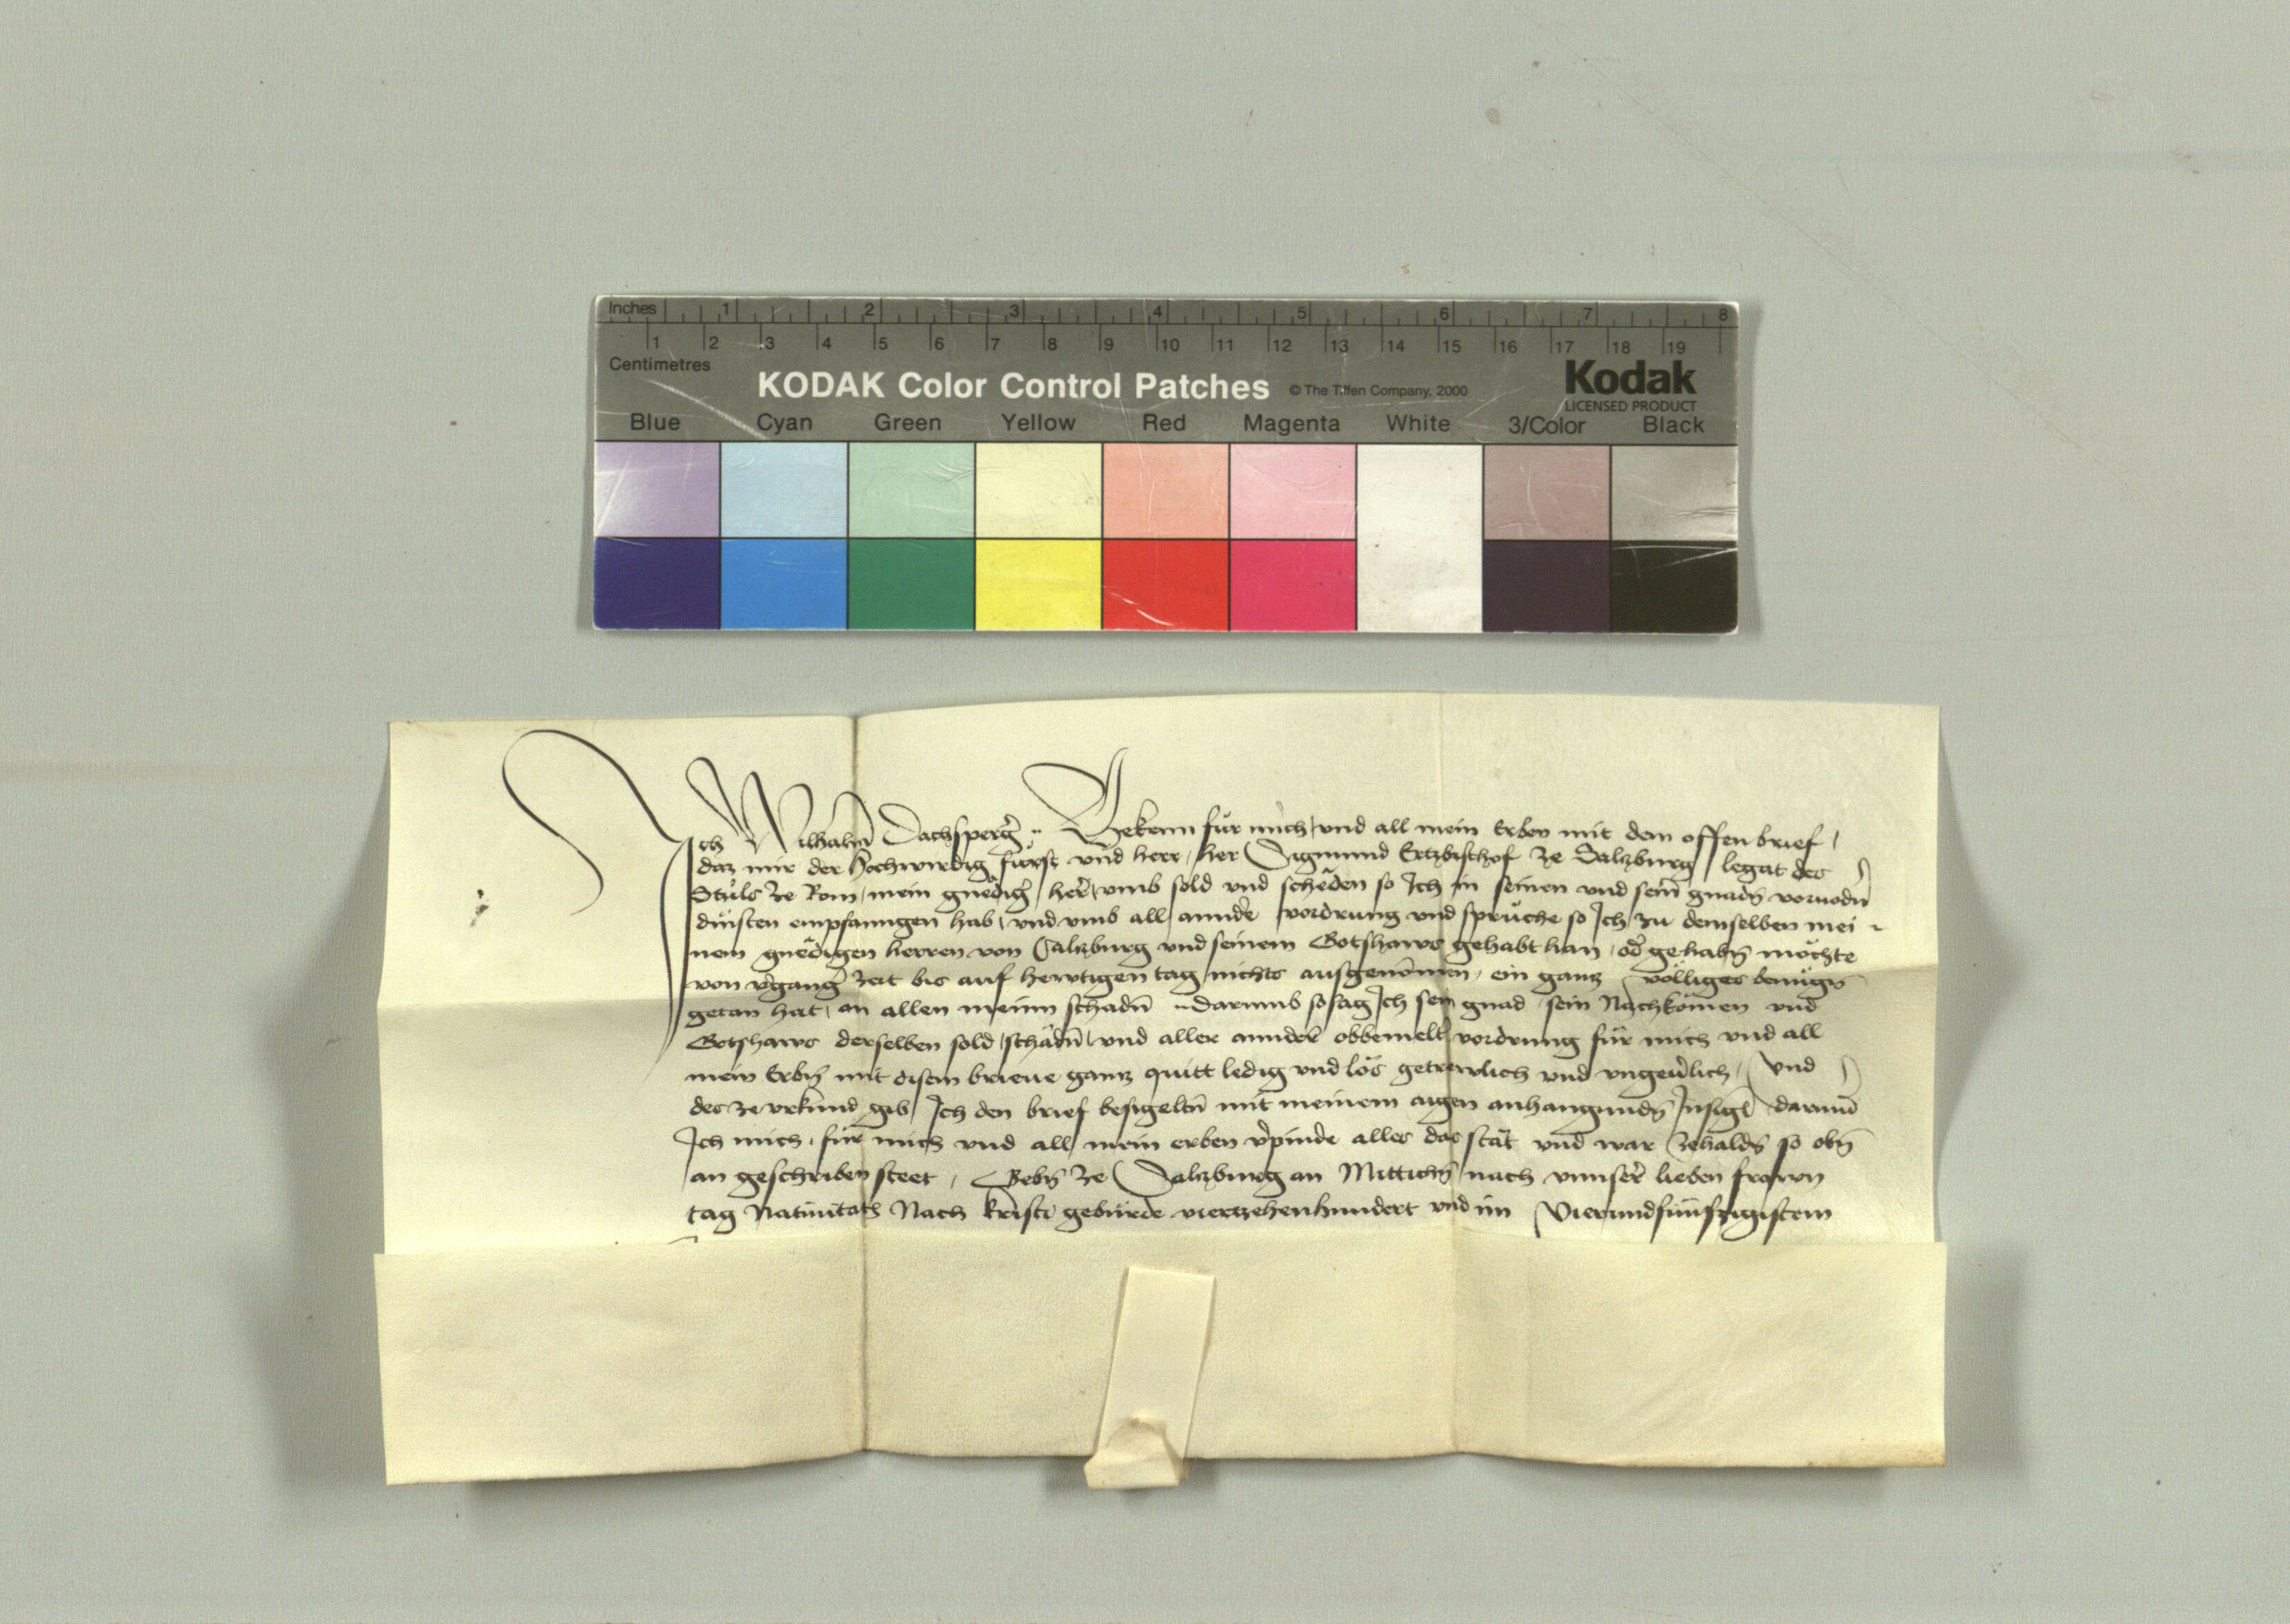 Inches 1 2 3 4 5 6 7 8
1 2 3 4 5 6 7 8 9 10 11 12 13 14 15 16 17 18 19
Centimetres
KODAK Color Control Patches © The Tiffen Company, 2000
Kodak
LICENSED PRODUCT
Blue Cyan Green Yellow Red Magenta White 3/Color Black
Ich Wilhalm̄ Dachsperg̃ Bekenn für mich und all mein Erben mit dem offen brief
daz mir der Hochwirdig fürst und herr her Sigmund Ertzbischof ze Salzburg legat des
Stůls ze Rom mein gnedig̃ her̃ vmb sold und scheden so Ich in seinen und sein̄ gnadn̄
dinsten empfanngen hab und vmb all annder vordrung und sprüche so Ich zu demselben mei
nem gnedigen herren von Salzburg und seinem Gotshaws gehabt han od̃ gehabn̄ möchte
von v̄gang̃ zeit bis auf hewtigen tag nichts ausgenōmen ein ganz völliges benügn̄
getan hat an allen meinn schadn̄ darumb so sag Ich sein gnad sein Nachkōmen und
Gotshaws derselben sold schädn̄ und aller annder̃ obbemelt̃ vordrung für mich und all
mein Erbn̄ mit disem brieue ganz quitt ledig und los getrewlich und vngeũlich Und
des ze vrkund gib Ich den brief besigeltn̄ mit meinem aigen anhangundn̄ Insigl darund̃
Ich mich für mich und all mein erben v̄pinde alles das stät und war zehaldn̄ so obn̄
an geschriben steet Gebn̄ ze Salzburg an Mittichn̄ nach vnnser̃ lieben frawn
tag Natiuitatis Nach kristi gebürde viertzehenhundert und im Vierundfünfzigistem